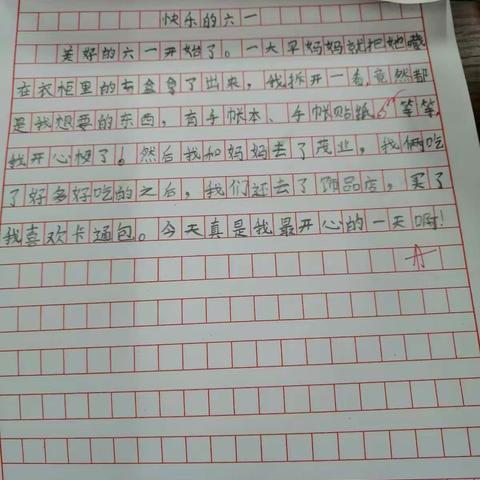 快乐的六一
美好的六一开始了。一大早妈妈就把她藏
在衣柜里的盲盒拿了出来，我拆开一看，竟然都
是我想要的东西，有手帐本、手帐贴纸等等，
我开心极了！然后我和妈妈去了茂业，我俩吃
了好多好吃的之后，我们还去了饰品店，买了
我喜欢卡通包。今天真是我最开心的一天啊！
A